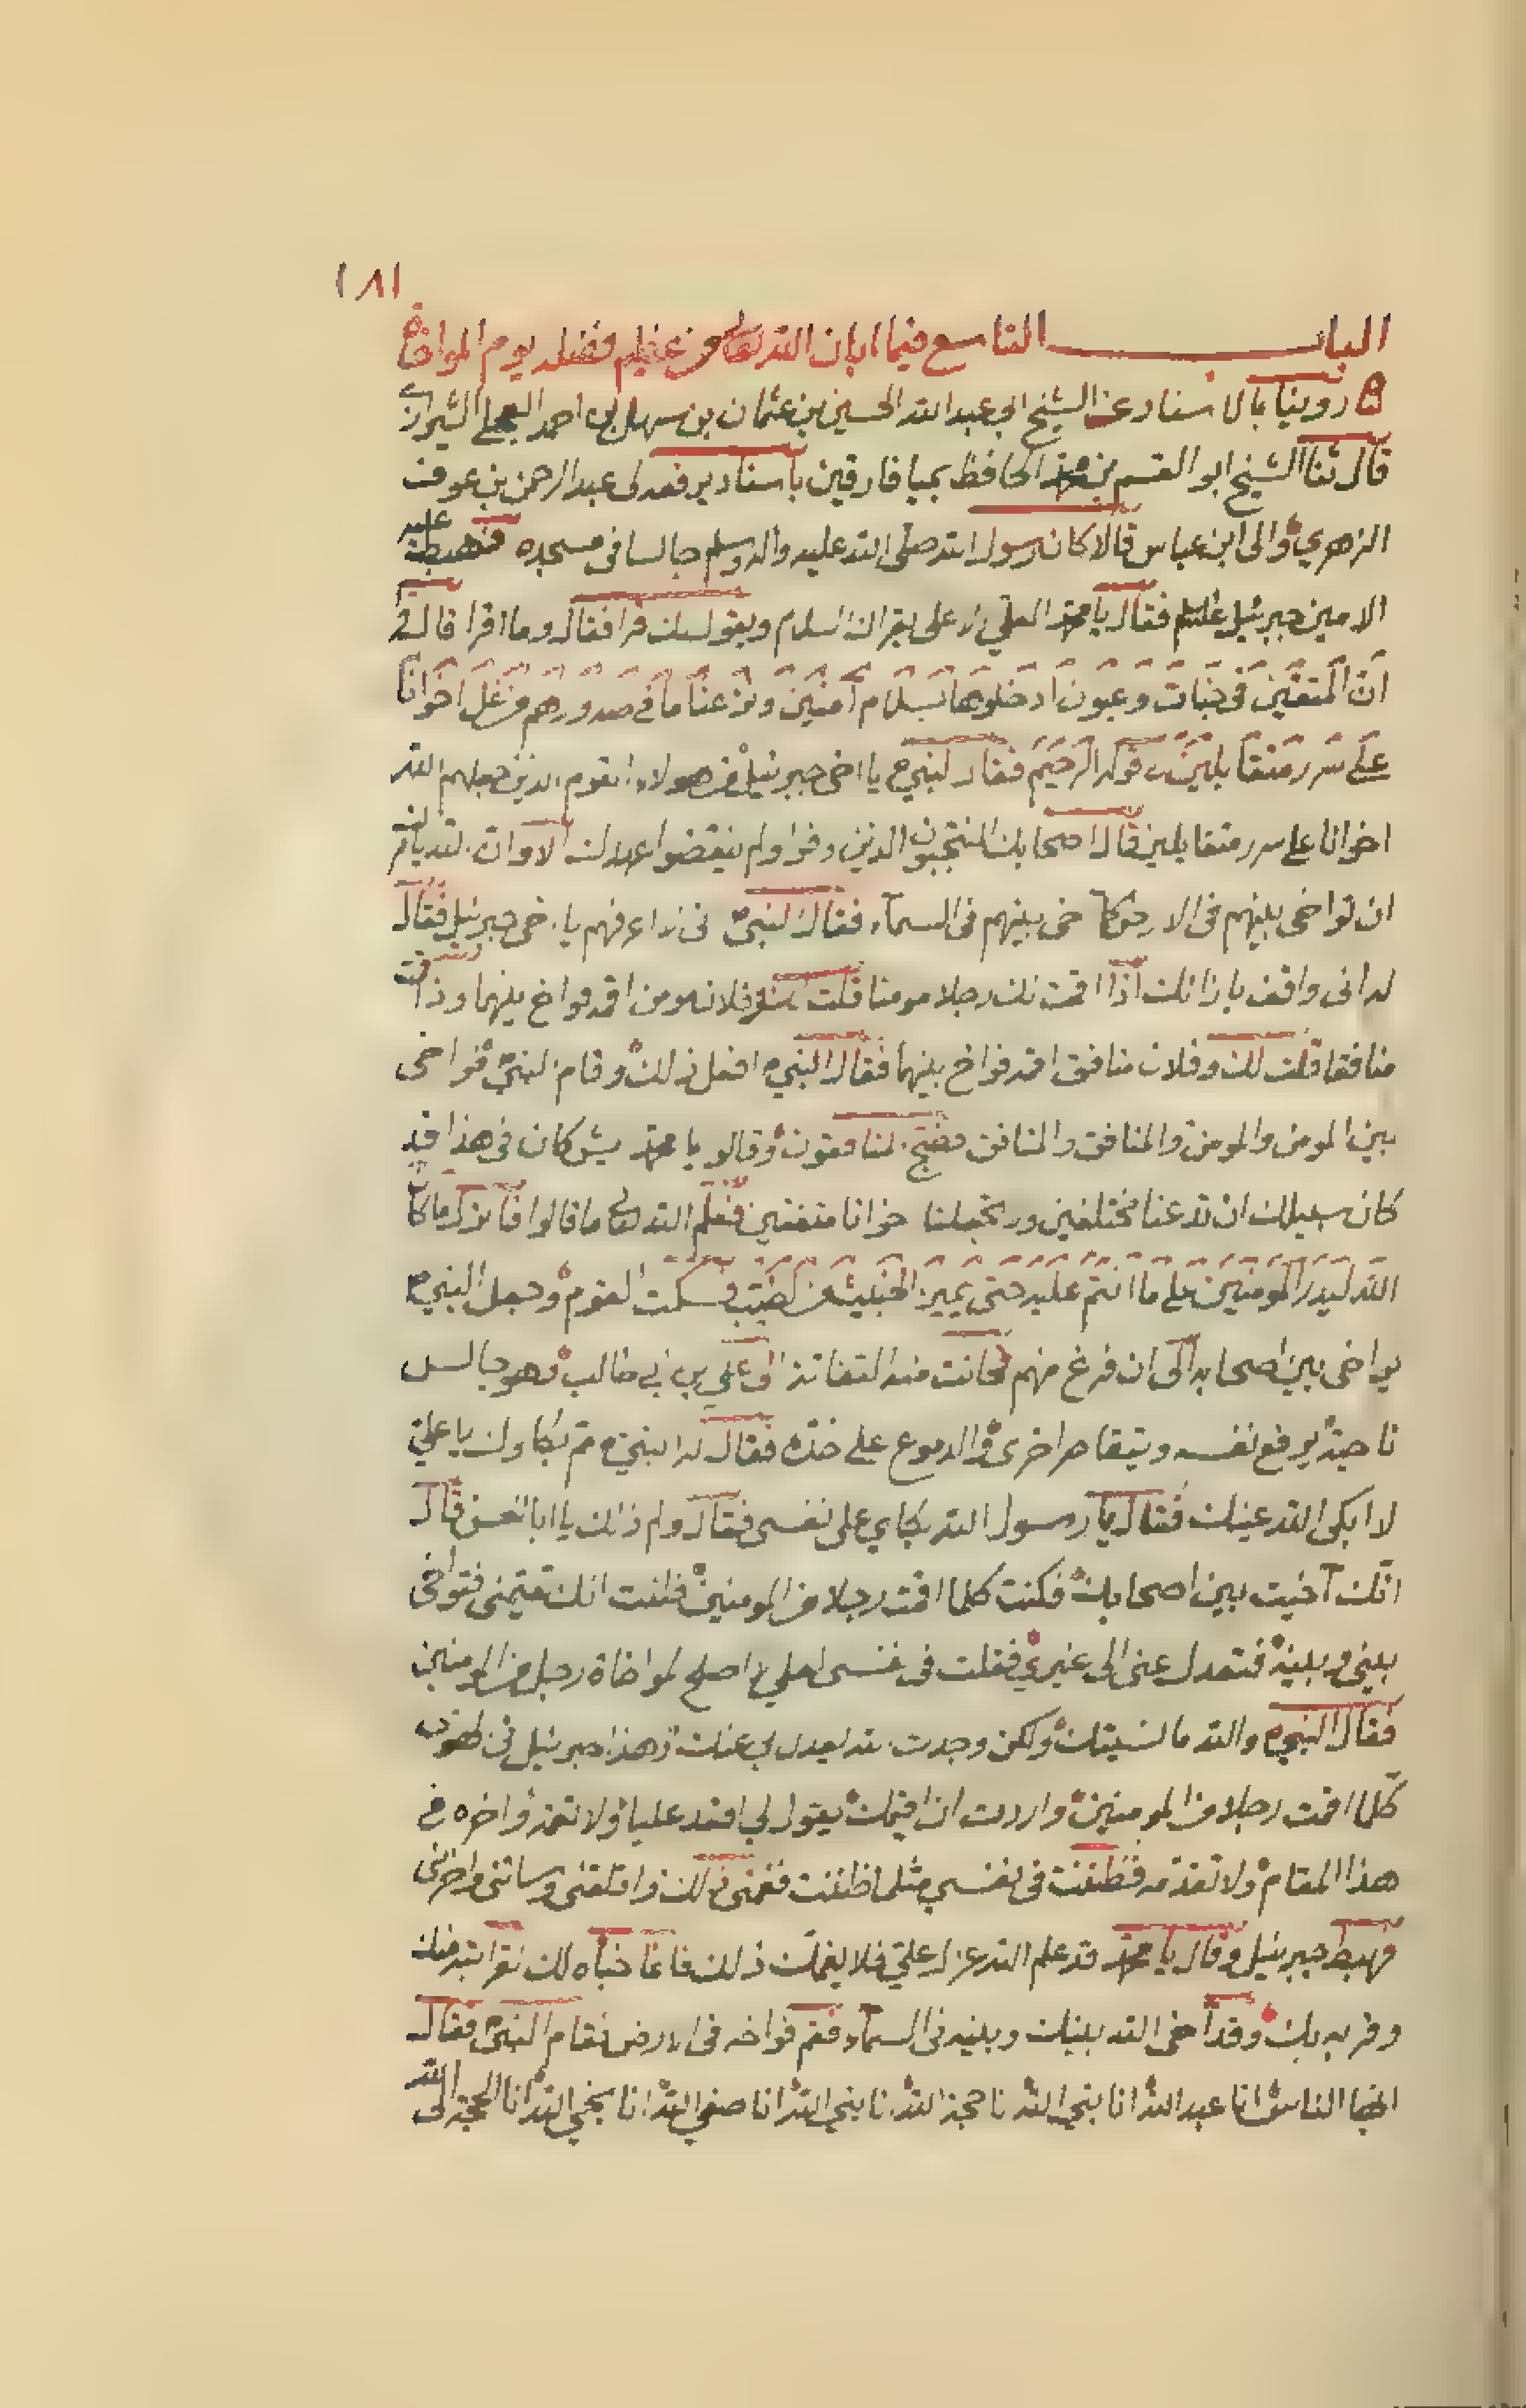 ١٨١
الباب التاسع فيما ابان الله تعالى من عظيم فضله يوم المواخاة
روينا بالاسناد عن الشيخ ابي عبد الله الحسين بن عثمان بن سهل بن احمد العجلي الشيرازي
قال ثنا الشيخ ابو القسم بن محمد الحافظ بميافارقين باسناد يرفعه الى عبد الرحمن بن عوف
الزهري والى ابن عباس قالا كان رسول الله صلى الله عليه واله وسلم جالسا في مسجده فهبط عليه
الامين جبرئيل عليه السلم فقال يا محمد العلي الاعلى يقرئك السلام ويقول لك اقرا فقال وما اقرا قال
ان المتقين في جنات وعيون ادخلوها بسلام آمنين ونزعنا ما في صدورهم من غل اخوانا
على سرر متقابلين قوله الرحيم فقال النبي ص يا اخي جبرئيل من هولاء القوم الذين جعلهم الله
اخوانا على سرر متقابلين قال اصحابك المنتجبون الذين وفوا ولم ينقضوا عهدك الا وان الله يامرك
ان تواخي بينهم في الارض كما آخى بينهم في السماء فقال النبي اعرفهم يا اخي جبرئيل فقال
له اني واقف بازائك اذا اقمت رجلا مومنا قلت لك فلان مومن اقمه فواخ بينهما واذا اقمت
منافقا قلت لك وفلان منافق اقمه فواخ بينهما فقال النبي افعل ذلك وقام النبي فواخى
بين المومن والمومن والمنافق والمنافق فضج المنافقون وقالوا يا محمد ايش كان في هذا قد
كان سبيلك ان تدعنا مختلفين ولا تجعلنا اخوانا متفقين فعلم الله تعالى ما قالوا فانزل ما كان
الله ليذر المومنين على ما انتم عليه حتى يميز الخبيث من الطيب فسكت القوم وجعل النبي ص
يواخي بين اصحابه الى ان فرغ منهم فحانت منه التفاتة الى علي بن ابي طالب وهو جالس
ناحية يرفع نفسه ويتقاصر اخرى والدموع على خده فقال له النبي مم بكاوك يا علي
لا ابكى الله عينك فقال يا رسول الله بكاي على نفسي فقال ولم ذلك يا ابا الحسن قال
انك آخيت بين اصحابك فكنت كلما اقمت رجلا من المومنين ظننت انك تقيمني فتواخي
بيني وبينه فتعدل عني الى غيري فقلت في نفسي لعلي لا اصلح لمواخاة رجل من المومنين
فقال النبي ص والله ما نسيتك ولكن وجدت الله يعدل بي عنك وهذا جبرئيل في الهوى
كلما اقمت رجلا من المومنين واردت ان اقيمك يقول لي اقعد عليا ولا تقمه واخره في
هذا المقام ولا تقدمه فظننت في نفسي مثلما ظننت فغمني ذلك واقلقني وساءني واحزنني
فهبط جبرئيل وقال يا محمد قد علم الله عزل علي فلا يغمك ذلك فانما خباه لك لقرابته منك
وقربه بك وقد آخى الله بينك وبينه في السماء فقم فواخه في الارض فقام النبي فقال
ايها الناس انا عبد الله انا نبي الله انا حجة الله انا نبي الله انا صفي الله انا نجي الله انا الحجة الى الله